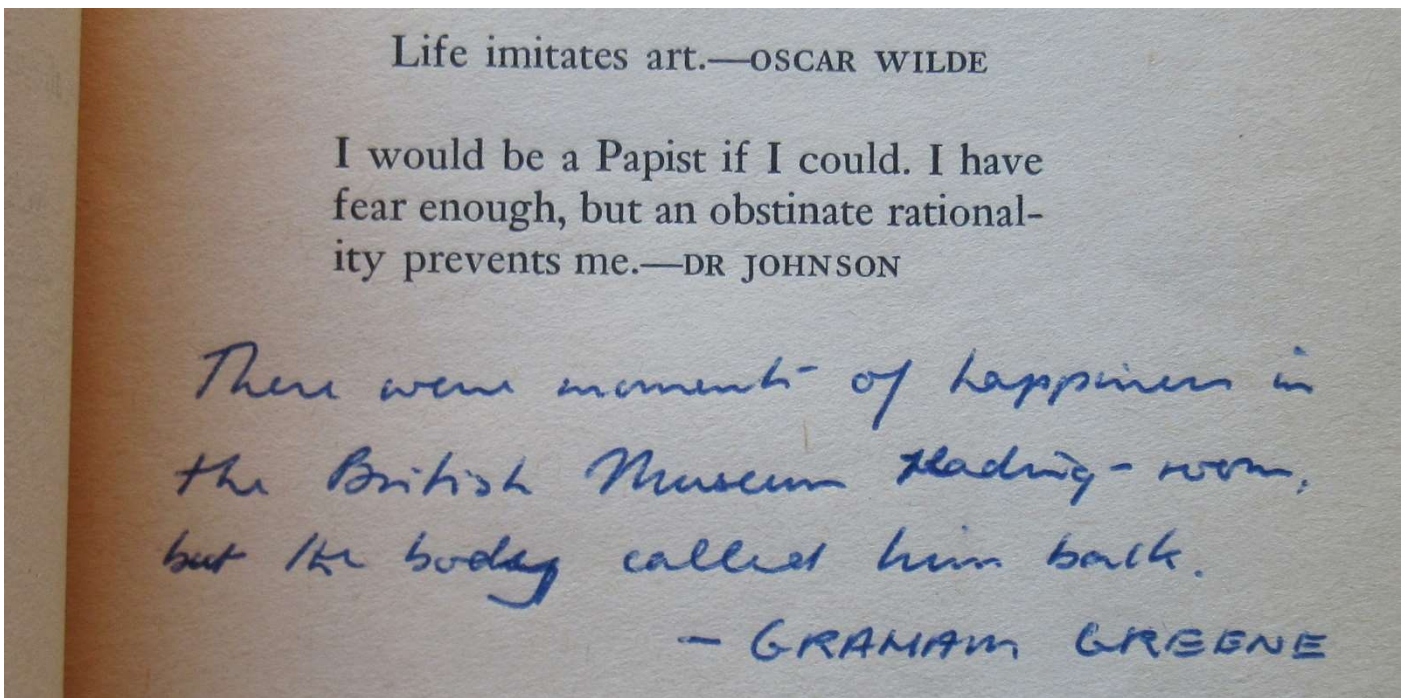 Life imitates art.—OSCAR WILDE
I would be a Papist if I could. I have
fear enough, but an obstinate rational-
ity prevents me.—DR JOHNSON
There were moments of happiness in
the British Museum reading-room,
but the body called him back.
— GRAHAM GREENE